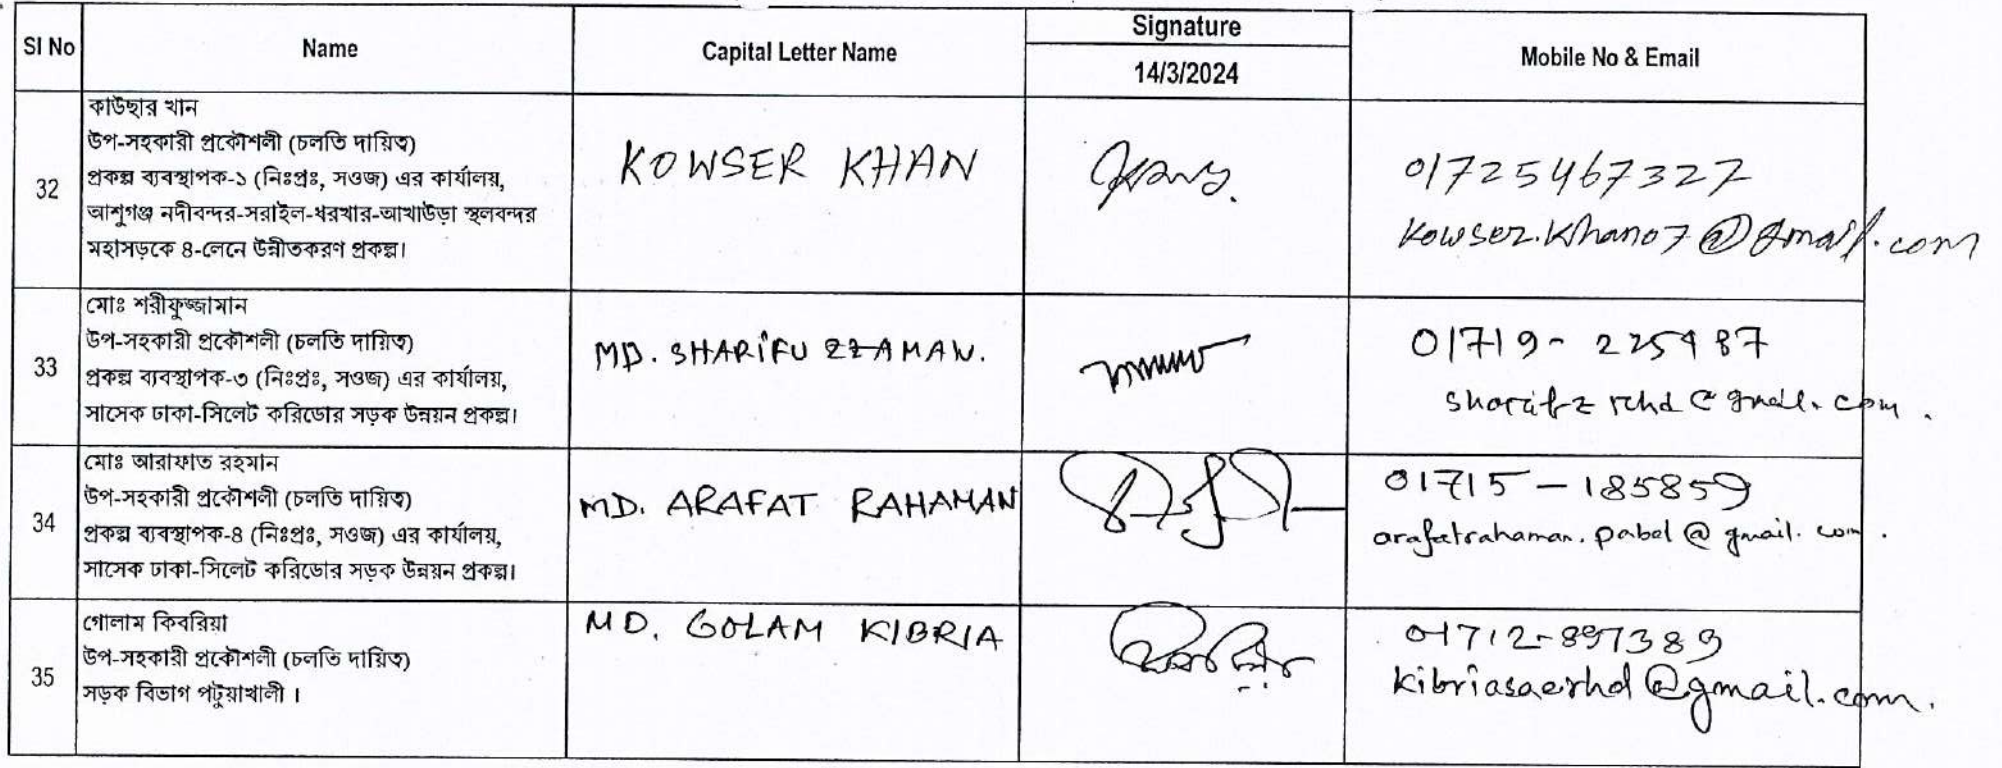 SI No
Name
Capital Letter Name
Signature
14/3/2024
Mobile No & Email
32
কাউছার খান
উপ-সহকারী প্রকৌশলী (চলতি দায়িত্ব)
প্রকল্প ব্যবস্থাপক-১ (নিঃপ্রঃ, সওজ) এর কার্যালয়,
আশুগঞ্জ নদীবন্দর-সরাইল-ধরখার-আখাউড়া স্থলবন্দর
মহাসড়কে ৪-লেনে উন্নীতকরণ প্রকল্প।
KOWSER KHAN
01725467327
kowser.khan07@gmail.com
33
মোঃ শরীফুজ্জামান
উপ-সহকারী প্রকৌশলী (চলতি দায়িত্ব)
প্রকল্প ব্যবস্থাপক-৩ (নিঃপ্রঃ, সওজ) এর কার্যালয়,
সাসেক ঢাকা-সিলেট করিডোর সড়ক উন্নয়ন প্রকল্প।
MD. SHARIFUZZAMAN.
01719-225487
sharifz rhd@gmail.com.
34
মোঃ আরাফাত রহমান
উপ-সহকারী প্রকৌশলী (চলতি দায়িত্ব)
প্রকল্প ব্যবস্থাপক-৪ (নিঃপ্রঃ, সওজ) এর কার্যালয়,
সাসেক ঢাকা-সিলেট করিডোর সড়ক উন্নয়ন প্রকল্প।
MD. ARAFAT RAHAMAN
01715-185859
arafatrahaman.pabel@gmail.com.
35
গোলাম কিবরিয়া
উপ-সহকারী প্রকৌশলী (চলতি দায়িত্ব)
সড়ক বিভাগ পটুয়াখালী ।
MD. GOLAM KIBRIA
01712-897389
kibriasaerhd@gmail.com.